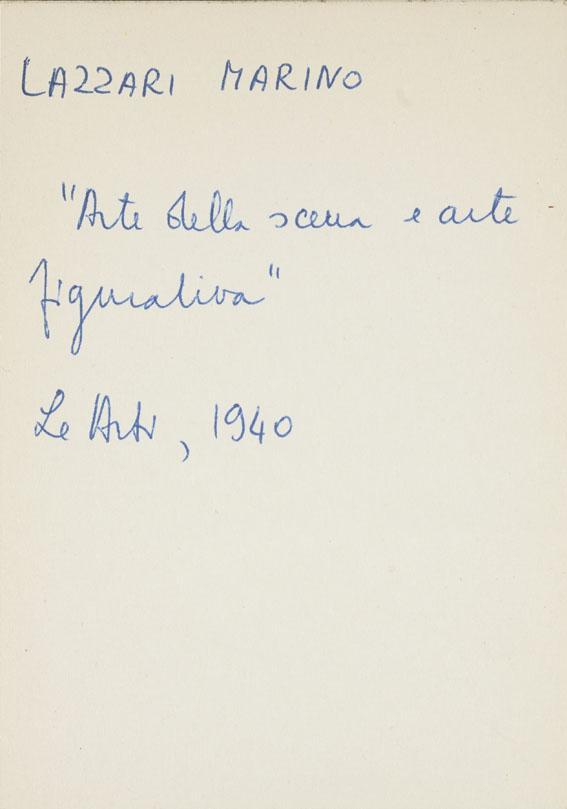 LAZZARI MARINO
"Arte della scena e arte
figurativa"
Le Arti, 1940